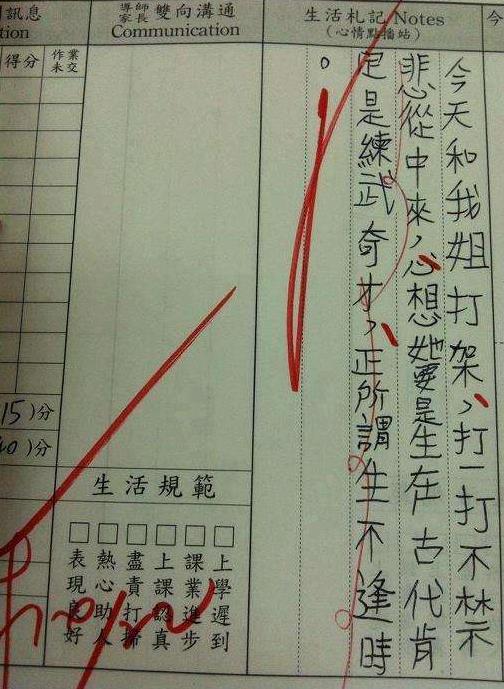 今
生活札記 Notes
（心情點播站）
今天和我姐打架，打一打不禁
悲從中來，心想她要是生在古代肯
定是練武奇才，正所謂生不逢時
。
導師
家長
雙向溝通
Communication
訊息
tion
得分
作業
未交
15）分
40）分
生活規範
□上學遲到
□課業進步
□上課認真
□盡責打掃
□熱心助人
□表現良好